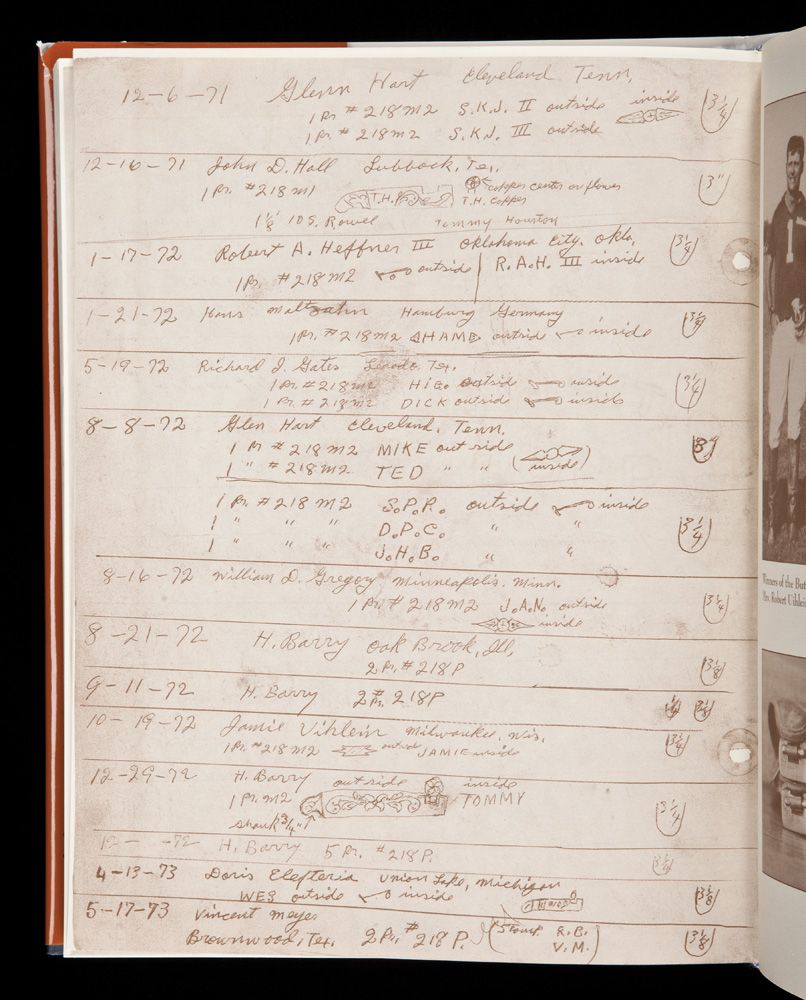 12-6-71 Glenn Hart Cleveland Tenn.
1 Pr # 218 m2 S.K.J. II outside inside 3 1/4
1 Pr. # 218 m2 S.K.J. III outside
12-16-71 John D. Hall Lubbock, Tex. 3"
1 Pr. # 218 m1 T.H. copper center on flower
T.H. Copper
1 1/8 10 S. Rowel Tommy Houston
1-17-72 Robert A. Heffner III Oklahoma City. Okla. 3 1/4
1 Pr. # 218 m2 outside R.A.H. III inside
1-21-72 Hans Maltzahn Hamburg Germany
1 Pr. # 218 m2 outside inside
5-19-72 Richard J. Gates Tex. 3 1/4
1 Pr. # 218 m2 outside inside
1 Pr. # 218 m2 DICK outside inside
8-8-72 Glen Hart Cleveland, Tenn.
1 Pr # 218 m2 MIKE outside
1 " # 218 m2 TED " " (inside)
1 Pr. # 218 m2 S.P.P. outside inside 3 1/4
1 " " " D.P.C. " "
1 " " " J.H.B. " "
8-16-72 William D. Gregory Minneapolis. Minn.
1 Pr. # 218 m2 J.A.N. outside 3 1/4
inside
8-21-72 H. Barry Oak Brook, Ill,
2 Pr. # 218 P 3 1/8
9-11-72 H. Barry 2 Pr. # 218 P
10-19-72 Jamie Vihlein Milwaukee, Wis. 3 1/4
1 Pr. # 218 m2 outside JAMIE inside
12-29-72 H. Barry outside inside
1 Pr. m2 TOMMY 3 1/4
shank 3/4"
12- -72 H. Barry 5 Pr. # 218 P. 3 1/4
4-13-73 Doris Elefteria Union Lake, Michigan
WES outside inside 3 1/8
5-17-73 Vincent Mayes
Brownwood, Tex. 2 Pr. # 218 P. (Stamp R.B. 3 1/8
V.M.)
1
Winners of the But
Mrs. Robert Uihlein